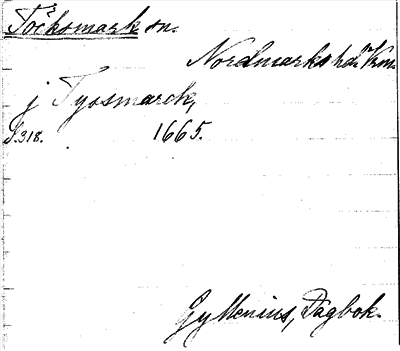 Töcksmark sn.
Nordmarks hd. Vrm.
j Tyssmarck,
S. 318. 1665.
Gyllenius, Dagbok.